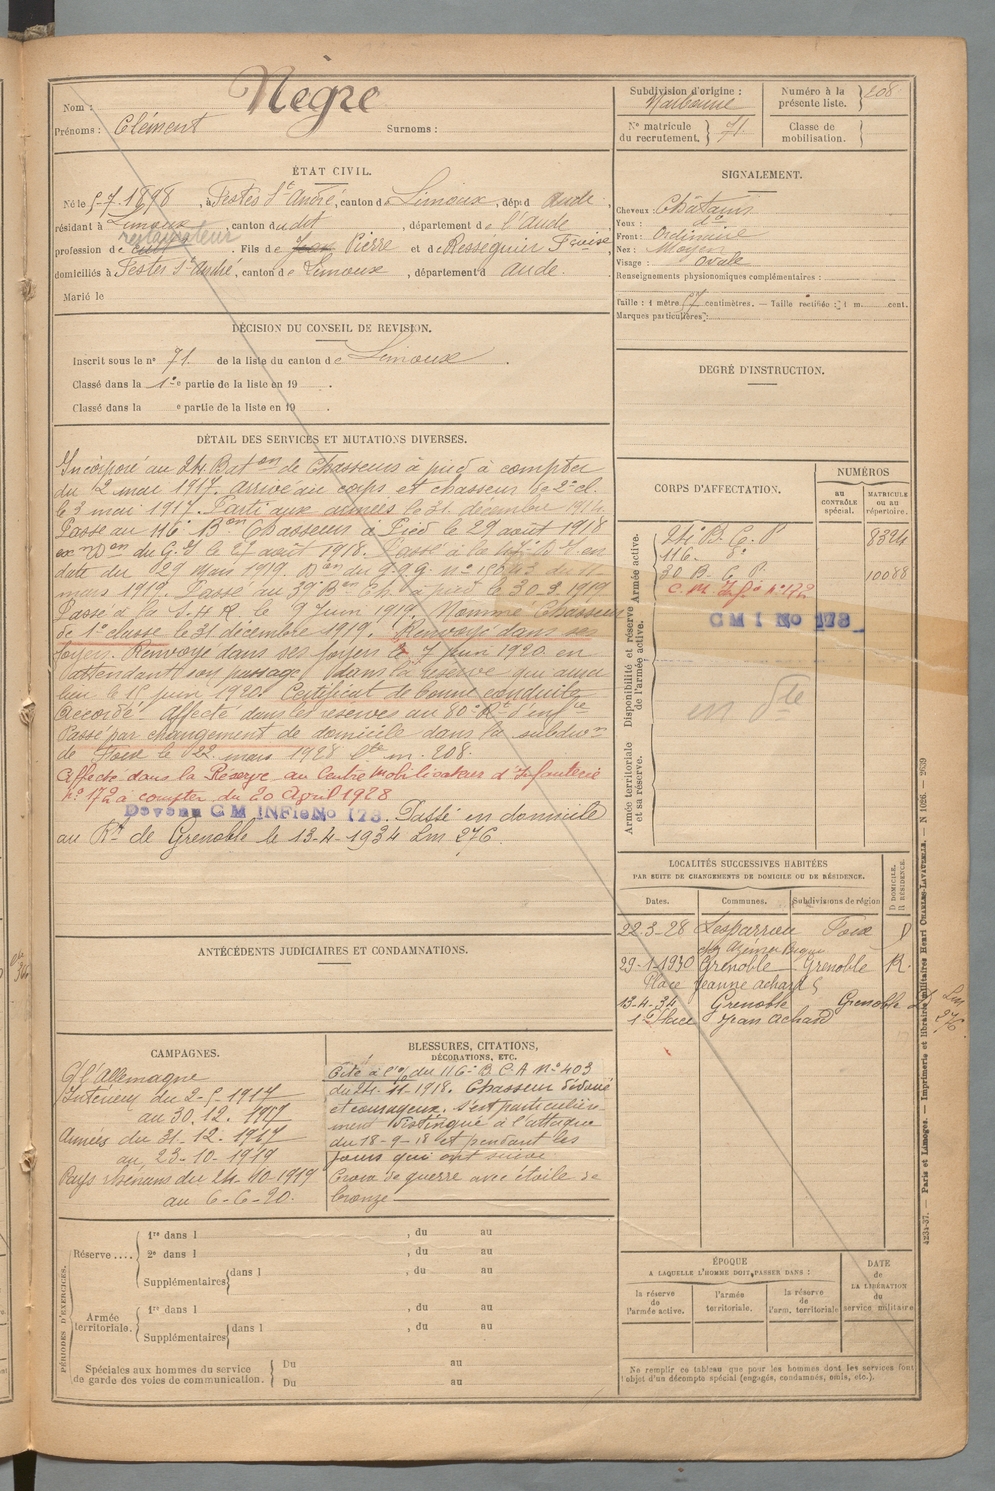 Nom : Nègre
Prénoms : Clément Surnoms :
Subdivision d'origine : Narbonne
Numéro à la présente liste. 208
N° matricule du recrutement. 71
Classe de mobilisation.
ÉTAT CIVIL.
Né le 5-7-1898, à Festes St André, canton de Limoux, dép.d Aude
résidant à Limoux, canton du dit, département de l'Aude
restaurateur
profession de cult, Fils de Jean Pierre et de Rességuier Froise
domiciliés à Festes St André, canton de Limoux, département d Aude.
Marié le
SIGNALEMENT.
Cheveux : Châtains
Yeux : do
Front : Ordinaire
Nez : Moyen
Visage : Ovale
Renseignements physionomiques complémentaires :
Taille : 1 mètre 67 centimètres. — Taille rectifiée : 1 m. cent.
Marques particulières :
DÉCISION DU CONSEIL DE REVISION.
Inscrit sous le n° 71 de la liste du canton de Limoux.
Classé dans la 1re partie de la liste en 19 .
Classé dans la e partie de la liste en 19 .
DEGRÉ D'INSTRUCTION.
DÉTAIL DES SERVICES ET MUTATIONS DIVERSES.
Incorporé au 24 Baton de Chasseurs à pied à compter
du 2 mai 1917. Arrivé au corps et chasseur de 2e cl.
le 3 mai 1917. Parti aux armées le 31 décembre 1917.
Passé au 116 Bon Chasseurs à Pied le 29 août 1918
Don du G. Q. le 27 août 1918. Passé à la
date du 29 mars 1919. Don du G.Q.G. n°
mars 1919. Passé au 39 Bon Ch. à pied le 30-9-1919
Passé à la S.H.R. le 9 Juin 1919. Nommé Chasseur
de 1e classe le 31 décembre 1919. Renvoyé dans ses
foyers. Renvoyé dans ses foyers le 7 Juin 1920 en
attendant son passage dans la réserve qui aura
lieu le 15 Juin 1920. Certificat de bonne conduite
Accordé. Affecté dans les réserves au 80e Rt d'infie
Passé par changement de domicile dans la subdivon
de Foix le 22 mars 1928 lte m. 208.
Affecté dans la Réserve au Centre Mobilisateur d'Infanterie
n° 172 à compter du 20 Avril 1928
Devenu C M INFie No 173. Passé en domicile
au Rt de Grenoble le 13-4-1934 Lm 276.
CORPS D'AFFECTATION.
NUMÉROS
au CONTRÔLE spécial.
MATRICULE ou au répertoire.
Armée active.
24e B. C. P. 8324
116 do
30 B. C. P. 10088
C. M. Infie n° 172
C M I No 173
en dte
Disponibilité et réserve de l'armée active.
Armée territoriale et sa réserve.
LOCALITÉS SUCCESSIVES HABITÉES
PAR SUITE DE CHANGEMENTS DE DOMICILE OU DE RÉSIDENCE.
Dates. Communes. Subdivisions de région D DOMICILE. R RÉSIDENCE.
22-3-28 Lesparrou Foix D
29-1-1930 Grenoble Grenoble R.
Place Jeanne Achard 5
13-4-34 Grenoble Grenoble D Lm 276
1 Place Jean Achard
ANTÉCÉDENTS JUDICIAIRES ET CONDAMNATIONS.
CAMPAGNES.
C/ l'Allemagne
Intérieur du 2-5-1917
au 30.12.1917
Armées du 31-12-1917
au 23-10-1919
Pays rhénans du 24-10-1919
au 6-6-20.
BLESSURES, CITATIONS,
DÉCORATIONS, ETC.
Cité à l'o/ du 116e B C A N° 403
du 24-11-1918. Chasseur dévoué
et courageux. s'est particulière-
ment distingué à l'attaque
du 18-9-18 et pendant les
jours qui ont suivi.
Croix de guerre avec étoile de
bronze
PÉRIODES D'EXERCICES.
Réserve .... 1re dans l , du au
2e dans l , du au
Supplémentaires dans l , du au
Armée territoriale. 1re dans l , du au
Supplémentaires dans l , du au
Spéciales aux hommes du service de garde des voies de communication. Du au
Du au
ÉPOQUE
A LAQUELLE L'HOMME DOIT PASSER DANS :
la réserve de l'armée active.
l'armée territoriale.
la réserve de l'arm. territoriale
DATE de LA LIBÉRATION du service militaire
Ne remplir ce tableau que pour les hommes dont les services font
l'objet d'un décompte spécial (engagés, condamnés, omis, etc.).
4234-37. — Paris et Limoges. — Imprimerie et librairie militaires Henri CHARLES-LAVAUZELLE. — N 1026. — 2639